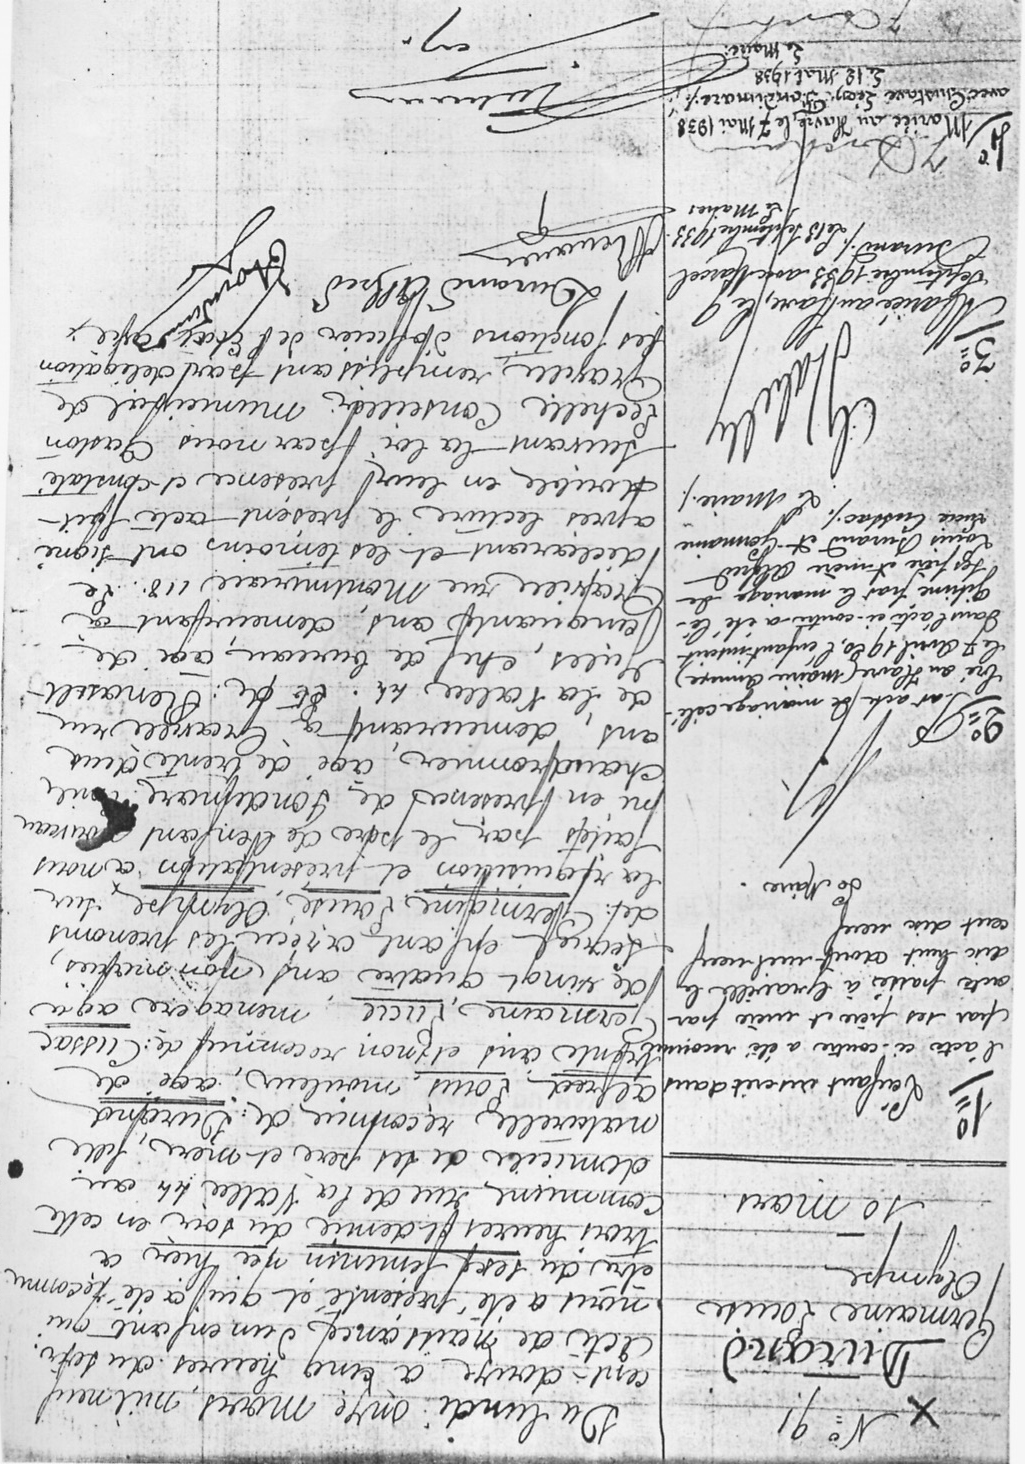 N° 91
Durand
Germaine Louise
Olympe
—
10 mars
Du lundi onze mars, mil neuf
cent-douze à cinq heures du soir.
Acte de naissance d'un enfant qui
nous a été présenté et qui a été reconnu
être du sexe féminin née hier à
trois heures et demie du soir en cette
commune rue de la Vallée 44 au
domicile de ses père et mère, fille
naturelle reconnue de: Durand
Alfred, Louis, mouleur, âgé de
trente ans et non reconnue de: Cussac
Germaine, Lucie, ménagère agée
de vingt quatre ans (non mariés,
lequel enfant a reçu les prénoms
de: Germaine, Louise, Olympe, sur
la réquisition et présentation à nous
faites par le père de l'enfant
en présence de, Fondimare,
chaudronnier, âgé de trente deux
ans, demeurant à Graville rue
de la Vallée 44. et de: Renault
Jules, chef de bureau, âgé de
cinquante ans, demeurant à
Graville rue Montmirail 118. Le
déclarant et les témoins ont signé
après lecture le présent acte fait
double en leur présence et constaté
suivant la loi par nous Gaston
Lechelle Conseiller Municipal de
Graville, remplissant par délégation
les fonctions d'officier de l'État civil
Durand Alfred
1°
L'enfant inscrit dans
l'acte ci-contre a été reconnue
par ses père et mère par
acte passé à Graville le
dix huit août mil neuf
cent dix neuf
Le Maire.
2°
Par acte de mariage célé-
bré au Havre (mairie annexe)
le 7 Avril 1920, l'enfant inscrit
dans l'acte ci-contre a été lé-
gitimé par le mariage de
ses père et mère Alfred
Louis Durand et Germaine
Lucie Cussac ./.
Le Maire ./.
3°
Mariée au Havre, le 9
Septembre 1933 avec Marcel
Durand ./. Le 13 Septembre 1933.
Le Maire:
4°
Mariée au Havre, le 7 Mai 1938
avec Gustave Léon Fondimare ./.
Le 12 Mai 1938
Le Maire: